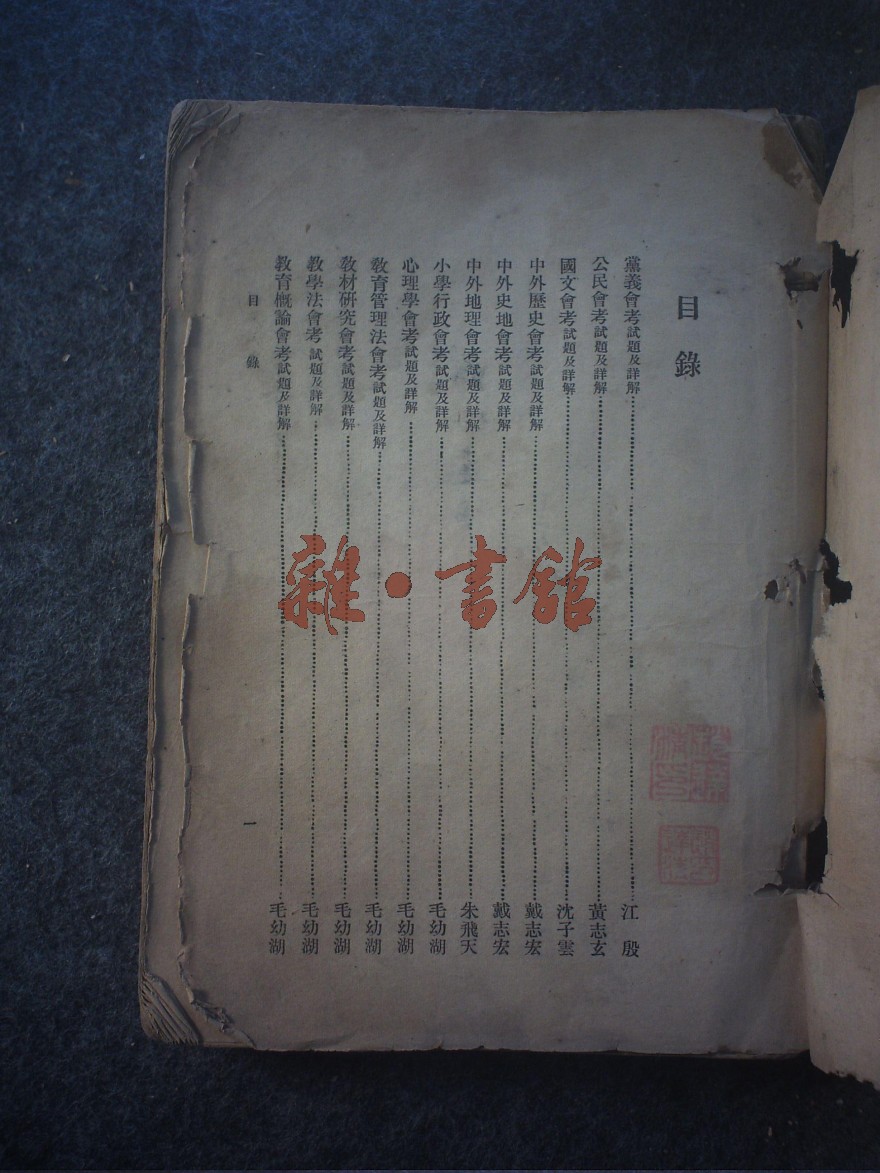 目錄
黨義會考試題及詳解……江殷
公民會考試題及詳解……黃志玄
國文會考試題及詳解……沈子雲
中外歷史會考試題及詳解……戴志宏
中外史地會考試題及詳解……戴志宏
中外地理會考試題及詳解……朱飛天
小學行政會考試題及詳解……毛幼湖
心理學會考試題及詳解……毛幼湖
教育管理法會考試題及詳解……毛幼湖
教材研究會考試題及詳解……毛幼湖
教學法會考試題及詳解……毛幼湖
教育概論會考試題及詳解……毛幼湖
目錄
一
雜·書館